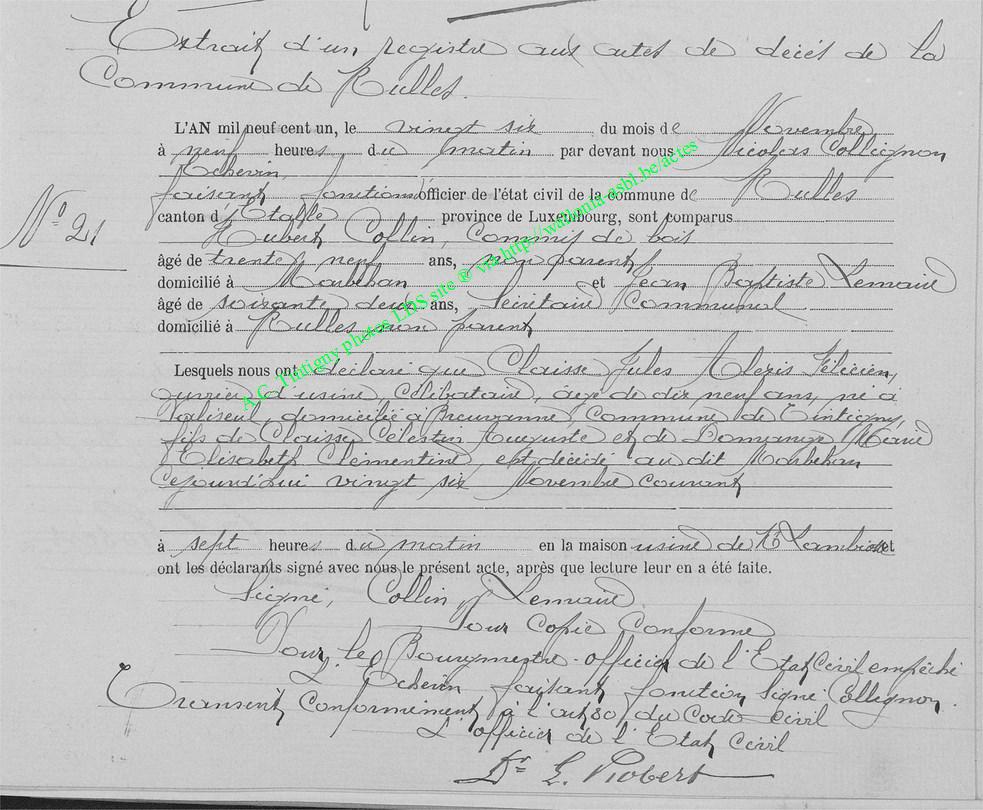 Extrait d'un registre aux actes de décès de la
Commune de Rulles.
L'AN mil neuf cent un, le vingt six du mois de Novembre
à neuf heures du matin par devant nous Nicolas Collignon
Echevin,
faisant fonctions officier de l'état civil de la commune de Rulles
canton d'Etalle province de Luxembourg, sont comparus
N° 21
Hubert Collin, Commis de bois
âgé de trente neuf ans, non parent
domicilié à Marbehan et Jean Baptiste Lemaire
âgé de soixante deux ans, Secrétaire Communal
domicilié à Rulles non parent
Lesquels nous ont déclaré que Claisse Jules Alexis Félicien,
ouvrier d'usine, Célibataire, âgé de dix neuf ans, né à
Paliseul, domicilié à Breuvanne, Commune de Tintigny,
fils de Claisse Célestin Auguste et de Domange Marie
Elisabeth Clémentine, est décédé au dit Marbehan
Cejourd'hui vingt six Novembre courant
à sept heures du matin en la maison usine de Lambiotte et
ont les déclarants signé avec nous le présent acte, après que lecture leur en a été faite.
Signé, Collin, J Lemaire
Pour Copie Conforme
Pour le Bourgmestre officier de l'Etat Civil empêché
L'Echevin faisant fonction signé Collignon.
Transcrit conformément à l'art 80 du Code civil
L'officier de l'Etat Civil
Dr E. Probert
A.C. Tintigny photos LDS site ® via http://wallonia-asbl.be/actes